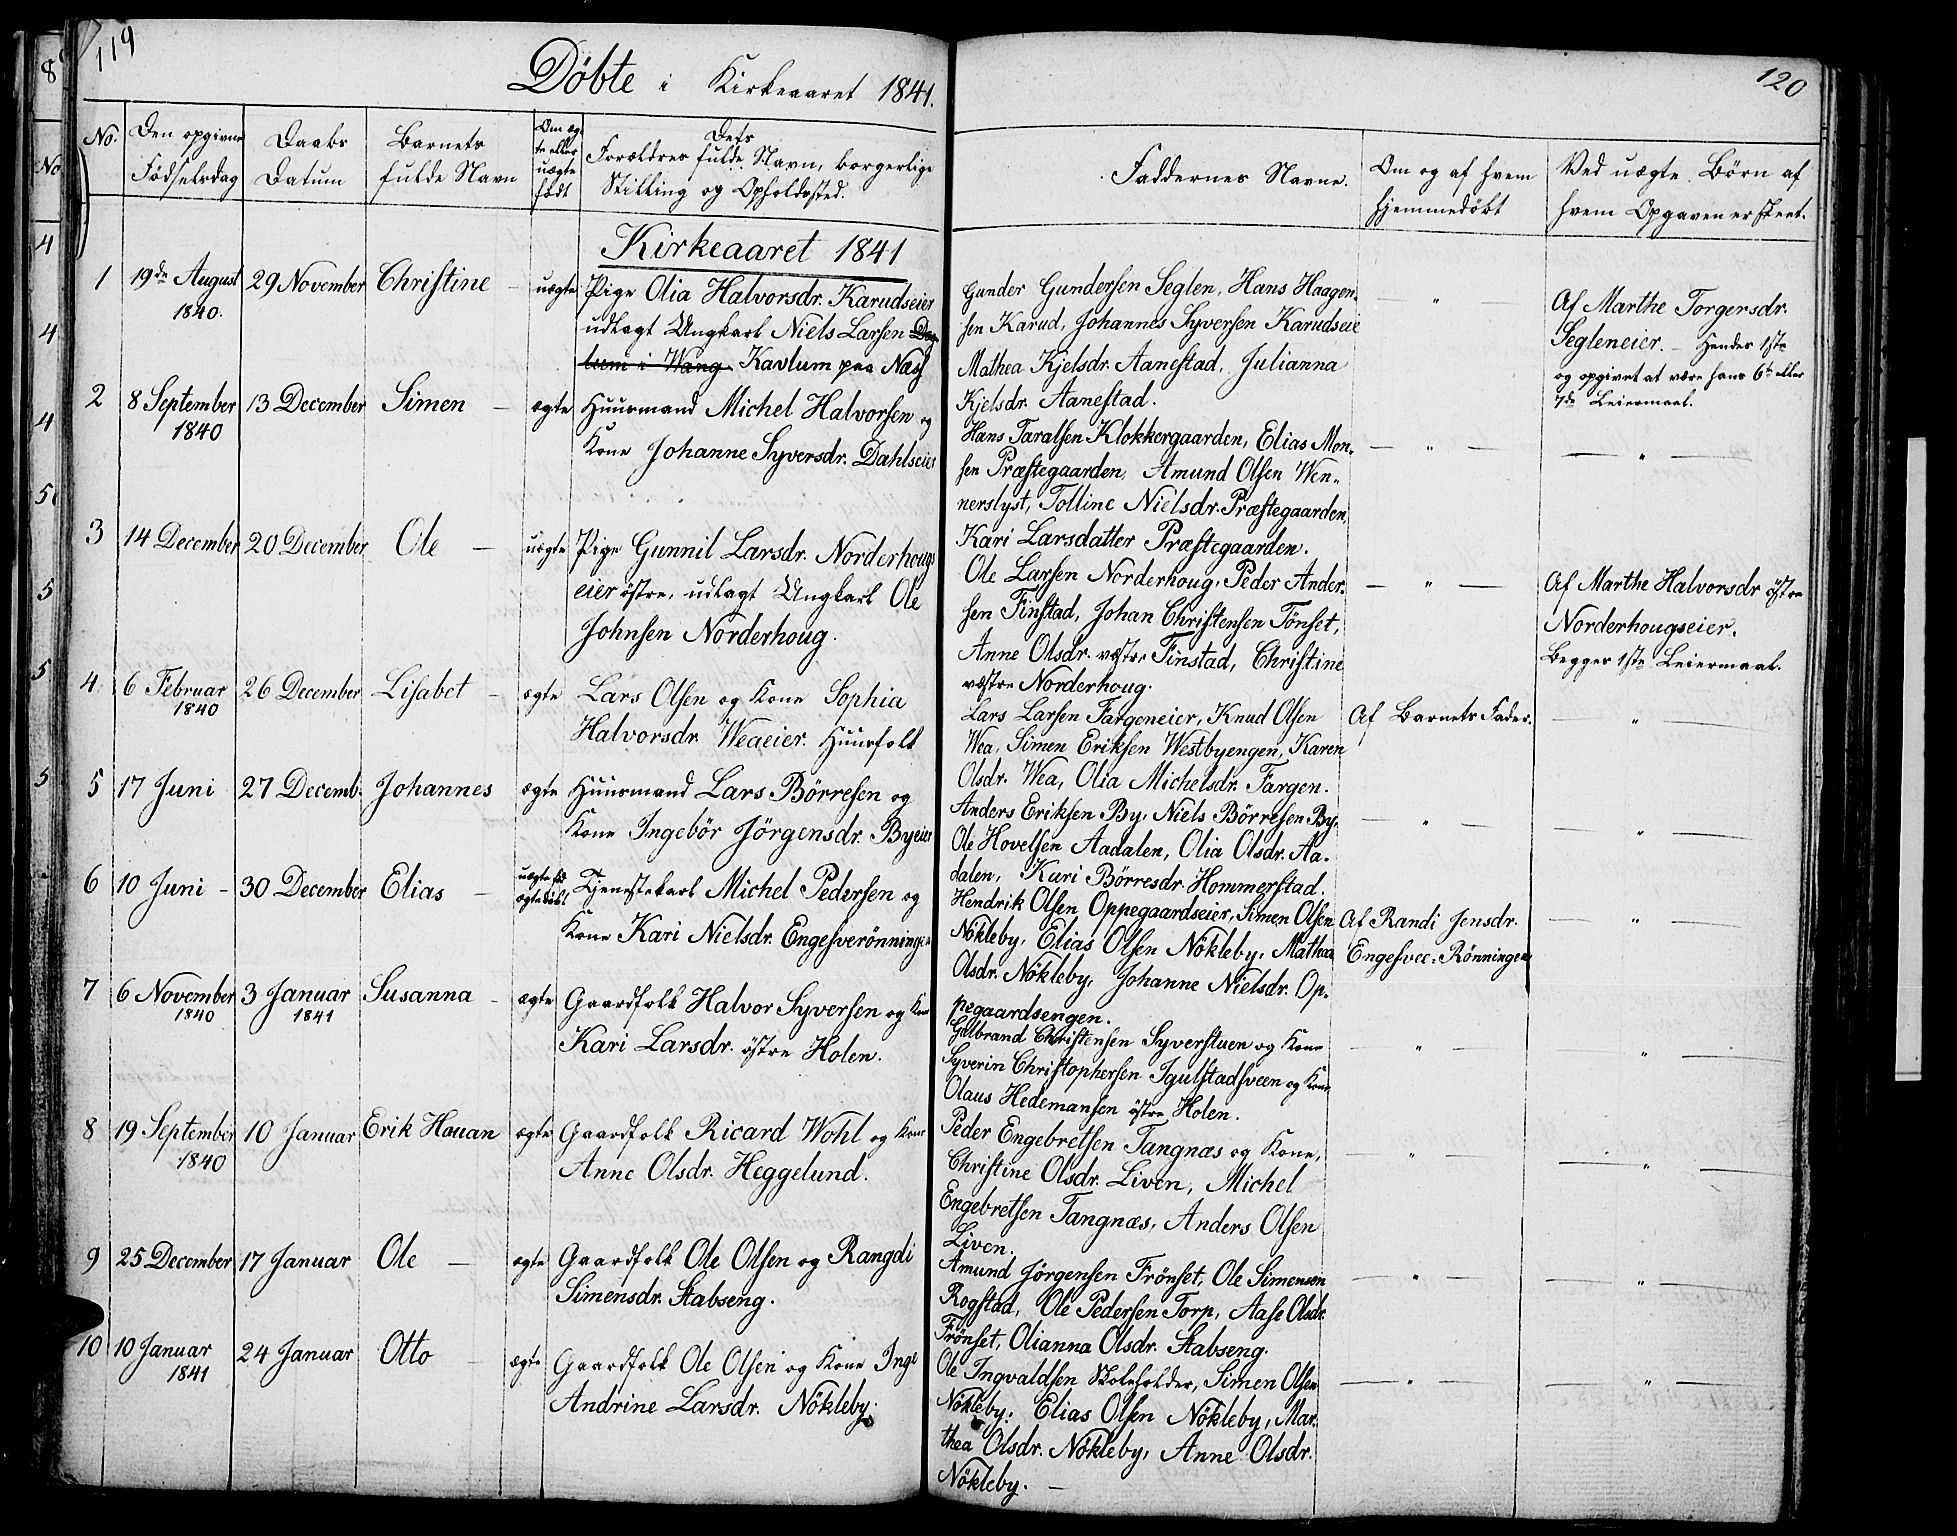 119
Döbte i Kirkeaaret 1841.
No.
Den opgivne
Födselsdag
Daabs
Datum
Barnets
fulde Navn
Om æg-
te eller
uægte
födt
Dets
Forældres fulde Navn, borgerlige
Stilling og Opholdssted.
Kirkeaaret 1841
1
19de August
1840.
29 November
Christine
uægte
Pige Olia Halvorsdr. Karudseier
udlagt Ungkarl Niels Larsen
lum i Wang Kavlum paa Næs
2
8 September
1840
13 December
Simen
ægte
Huusmand Michel Halvorsen og
Kone Johanne Syversdr. Dahlseier
3
14 December
20 December
Ole
uægte
Pige Gunnil Larsdr. Norderhougs
eier östre, udlagt Ungkarl Ole
Johnsen Norderhoug.
4
6 Februar
1840
26 December
Lisabet
ægte
Lars Olsen og Kone Sophia
Halvorsdr. Weaeier. Huusfolk
5
17 Juni
27 Decemb.
Johannes
ægte
Huusmand Lars Börresen og
Kone Ingebör Jörgensdr. Byeier
6
10 Juni
30 December
Elias
uægte
Tjenestekarl Michel Pedersen og
Kone Kari Nielsdr. Engesverönningen
7
6 November
1840
3 Januar
1841
Susanna
ægte
Gaardfolk Halvor Syversen og Kone
Kari Larsdr. östre Holen.
8
19 September
1840
10 Januar
Erik Houan
ægte
Gaardfolk Ricard Wohl og Kone
Anne Olsdr. Heggelund.
9
25 December
17 Januar
Ole
ægte
Gaardfolk Ole Olsen og Rangdi
Simensdr. Stabseng.
10
10 Januar
1841
24 Januar
Otto
ægte
Gaardfolk Ole Olsen og Kone Inge
Andrine Larsdr. Nökleby.
120
Faddernes Navne.
Om og af hvem
hjemmedöbt
Ved uægte Börn af
hvem Opgaven er skeet.
Gunder Gundersen Seglen, Hans Haagen-
sen Karud, Johannes Syversen Karudseie
Mathea Kjelsdr. Aanestad, Julianna
Kjelsdr. Aanestad.
Af Marthe Torgersdr.
Segleneier. - Hendes 1ste
og opgivet at være hans 6te eller
7de Leiermaal.
Hans Taralsen Klokkergaarden, Elias Mon-
sen Præstegaarden, Amund Olsen Wen-
nerslyst, Tolline Nielsdr. Præstegaarden,
Kari Larsdatter Præstegaarden.
Ole Larsen Norderhoug, Peder Ander-
sen Finstad, Johan Christensen Tönset,
Anne Olsdr. vestre Finstad, Christine
vestre Norderhoug.
Af Marthe Halvorsdr östre
Norderhougseier.
Begges 1ste Leiermaal.
Lars Larsen Fargeneier, Knud Olsen
Wea, Simen Eriksen Westbyengen, Karen
Olsdr. Wea, Olia Michelsdr. Fargen.
Af Barnets Fader.
Anders Eriksen By, Niels Börresen By,
Ole Hovelsen Aadalen, Olia Olsdr. Aa-
dalen, Kari Börresdr. Hommerstad.
Hendrik Olsen Oppegaardseier, Simen Olsen
Nökleby, Elias Olsen Nökleby, Mathea
Olsdr. Nökleby, Johanne Nielsdr. Op-
pegaardsengen.
Af Randi Jensdr.
Engesvee-Rönningen
Gulbrand Christensen Syverstuen og Kone
Syverin Christophersen Igulstadsveen og Kone
Olaus Hedemansen östre Holen.
Peder Engebretsen Tangnæs og Kone,
Christine Olsdr. Liven, Michel
Engebretsen Tangnæs, Anders Olsen
Liven.
Amund Jörgensen Frönset, Ole Simensen
Rogstad, Ole Pedersen Torp, Aase Olsdr.
Frönset, Olianna Olsdr. Stabseng.
Ole Ingvaldsen Skoleholder, Simen Olsen
Nökleby, Elias Olsen Nökleby, Mar-
thea Olsdr. Nökleby, Anne Olsdr.
Nökleby.